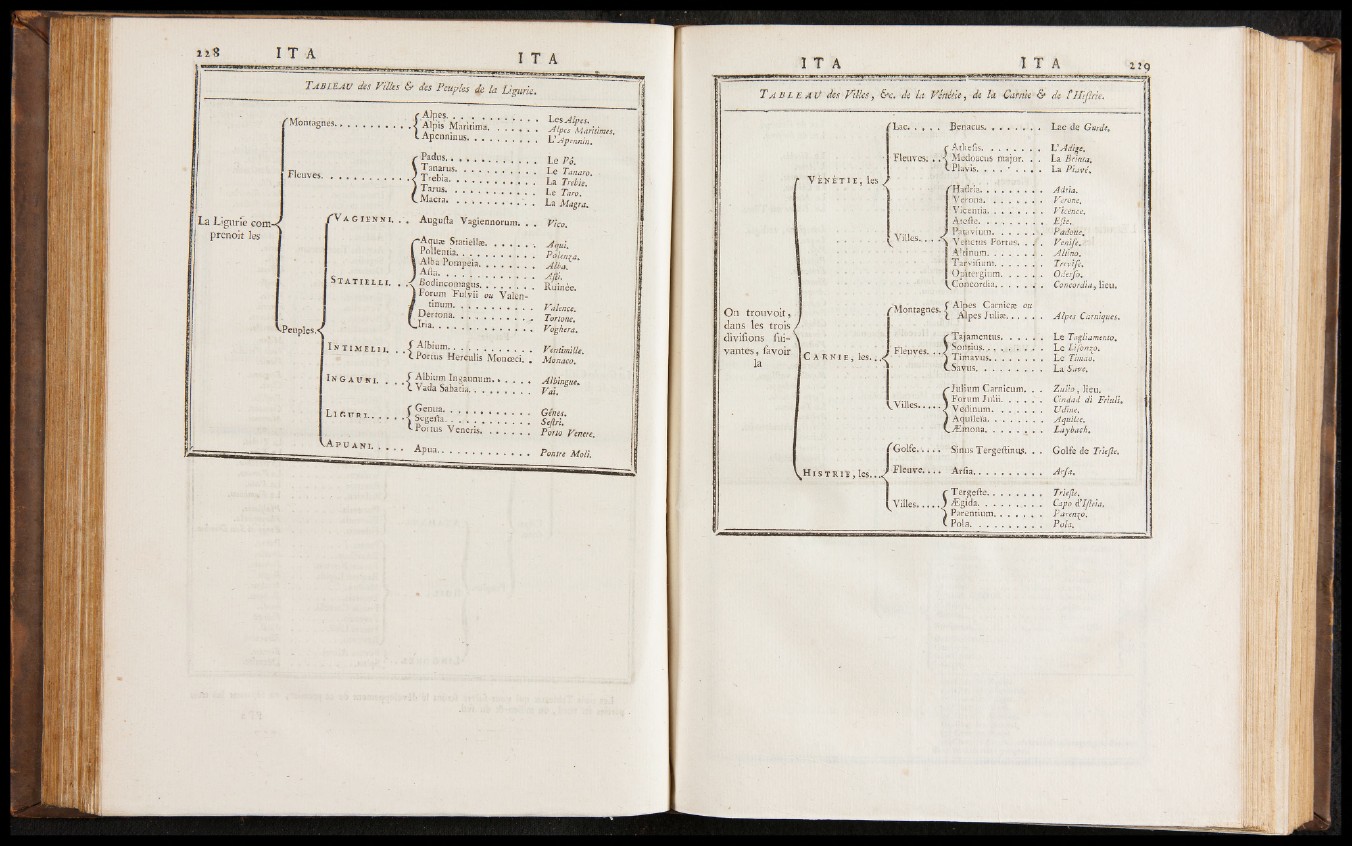 228 ITA ITA
TABLEAU des Villes & des Peuples de la Ligurie.
La Ligurie com-
prenoit les
Montagnes. Alpes. Les Alpes.
Alpis Maritima. Alpes Maritimes.
Apenninus. L'Apennin.
Fleuves. Padus. Le Pô.
Tanarus. Le Tanaro.
Trebia. La Trebie.
Tarus. Le Taro.
Macra. La Magra.
Peuples.
VAGIENNI. Augusta Vagiennorum. Vico.
STATIELLI. Aquæ Statiellæ. Aqui.
Pollentia. Polenza.
Alba Pompeia. Alba.
Asta. Asti.
Bodincomagus. Ruinée.
Forum Fulvii ou Valen-
tinum. Valence.
Dertona. Tortone.
Iria. Voghera.
INTIMELII. Albium. Ventimille.
Portus Herculis Monœci. Monaco.
INGAUNI. Albium Ingaunum. Albingue.
Vada Sabatia. Vai.
LIGURI. Genua. Gênes.
Segesta. Sestri.
Portus Veneris. Porto Venere.
APUANI. Apua. Pontre Moli.
ITA ITA 229
TABLEAU des Villes, &c. de la Vénétie, de la Carnie & de l'Histrie.
On trouvoit,
dans les trois
divisions sui-
vantes, savoir
la
VÉNÉTIE, les
Lac. Benacus. Lac de Garde.
Fleuves. Athesis. L'Adige.
Medoacus major. La Brinta.
Plavis. La Piavé.
Villes. Hadria. Adria.
Verona. Verone.
Vicentia. Vicence.
Ateste. Este.
Patavium. Padoue.
Venetus Portus. Venise.
Altinum. Altino.
Tarvisium. Trevise.
Opitergium. Oderso.
Concordia. Concordia, lieu.
CARNIE, les.
Montagnes. Alpes Carnicæ ou
Alpes Juliæ. Alpes Carniques.
Fleuves. Tajamentus. Le Tagliamento.
Sontius. Le Lisonzo.
Timavus. Le Timao.
Savus. La Save.
Villes. Julium Carnicum. Zulio, lieu.
Forum Julii. Ciudad di Friuli.
Vedinum. Udine.
Aquileia. Aquilée.
Æmona. Laybach.
HISTRIE, les.
Golfe. Sinus Tergestinus. Golfe de Trieste.
Fleuve. Arsia. Arsa.
Villes. Tergeste. Trieste.
Ægida. Capo d'Istria.
Parentium. Parenzo.
Pola. Pola.